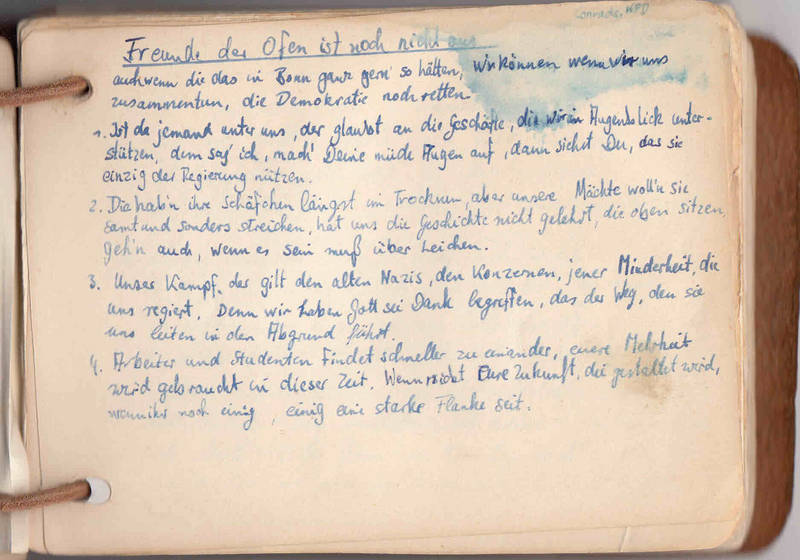 Conrads, KPD
Freunde der Ofen ist noch nicht aus
auchwenn die das in Bonn ganz gern so hätten, wir können wenn wir uns
zusammentun, die Demokratie noch retten
1. Ist da jemand unter uns, der glaubt an die Geschäfte, die wir im Augenblick unter-
stützen, dem sag' ich, mach' Deine müde Augen auf, dann siehst Du, das sie
einzig der Regierung nützen.
2. Die hab'n ihre Schäfchen längst im Trocknen, aber unsere Mächte woll'n sie
samt und sonders streichen, hat uns die Geschichte nicht gelehrt, die oben sitzen,
geh'n auch, wenn es sein muß über Leichen.
3. Unser Kampf, der gilt den alten Nazis, den Konzernen, jener Minderheit, die
uns regiert. Denn wir haben Gott sei Dank begriffen, das der Weg, den sie
uns leiten in den Abgrund führt.
4. Arbeiter und Studenten findet schneller zu einander, euere Mehrheit
wird gebraucht in dieser Zeit. Wenn Eure Zukunft, die gestaltet wird,
wenn ihr noch einig, einig eine starke Flanke seit.